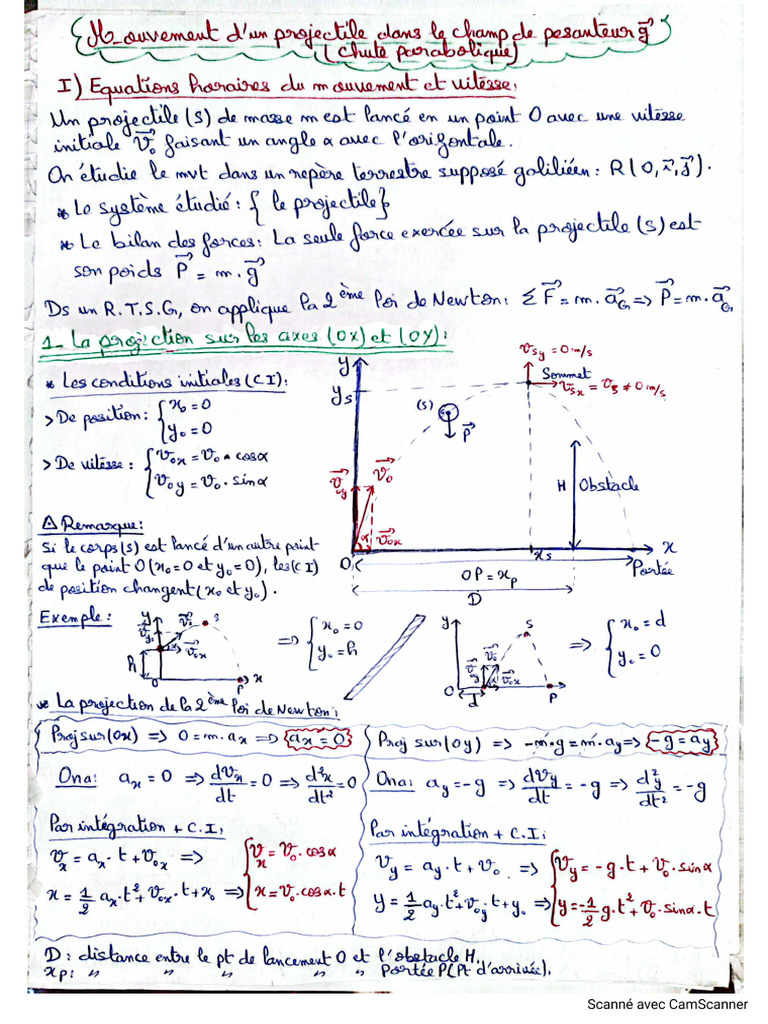 Mouvement d'un projectile dans le champ de pesanteur g⃗
(chute parabolique)
I) Equations horaires du mouvement et vitesse:
Un projectile (S) de masse m est lancé en un point O avec une vitesse
initiale V⃗₀ faisant un angle α avec l'orizontale.
On étudie le mvt dans un repère terrestre supposé galiliéen: R(O,i⃗,j⃗).
* Le système étudié: { le projectile}
* Le bilan des forces: La seule force exercée sur la projectile (S) est
son poids P⃗ = m.g⃗
Ds un R.T.S.G, on applique la 2ème loi de Newton: ΣF⃗ = m.a⃗G => P⃗ = m.a⃗G
1- La projection sur les axes (OX) et (OY):
* Les conditions initiales (CI):
> De position: { x₀ = 0
y₀ = 0
> De vitesse: { V₀x = V₀ . cosα
V₀y = V₀ . sinα
y
ys
(S)
P⃗
VSy = 0 m/s
Sommet
VSx = VS ≠ 0 m/s
V⃗₀y
V⃗₀
V⃗₀x
α
H
Obstacle
O
xs
x
Portée
OP = xp
D
⚠ Remarque:
Si le corps (s) est lancé d'un autre point
que le point O (x₀ = 0 et y₀ = 0), les (CI)
de position changent (x₀ et y₀).
Exemple:
y
V⃗₀y
V⃗₀
S
V⃗₀x
h
O
P
x
=> { x₀ = 0
y₀ = h
y
S
V⃗₀y
V⃗₀
V⃗₀x
O
d
P
=> { x₀ = d
y₀ = 0
* La projection de la 2ème loi de Newton:
Proj sur (ox) => 0 = m.ax => ax = 0
Ona: ax = 0 => dVx/dt = 0 => d²x/dt² = 0
Par intégration + C.I:
Vx = ax . t + V₀x => { Vx = V₀ . cosα
x = 1/2 ax . t² + V₀x . t + x₀ => x = V₀ . cosα . t
Proj sur (oy) => -m.g = m.ay => -g = ay
Ona: ay = -g => dVy/dt = -g => d²y/dt² = -g
Par intégration + C.I:
Vy = ay . t + V₀ . => { Vy = -g . t + V₀ . sinα
y = 1/2 ay . t² + V₀y . t + y₀ => y = -1/2 g . t² + V₀ . sinα . t
D : distance entre le pt de lancement O et l'obstacle H.
xp : " " " " Portée P (Pt d'arrivée).
Scanné avec CamScanner